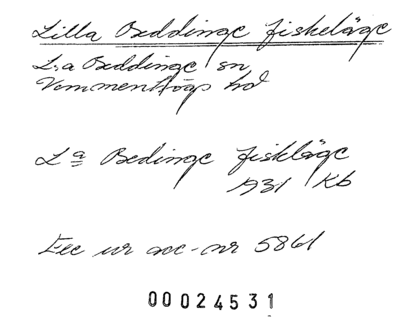 Lilla Beddinge fiskeläge
L:a Beddinge sn
Vemmenhögs hd
L a Bedinge fiskläge
1931 Kb
Exc ur acc-nr 5861
00024531